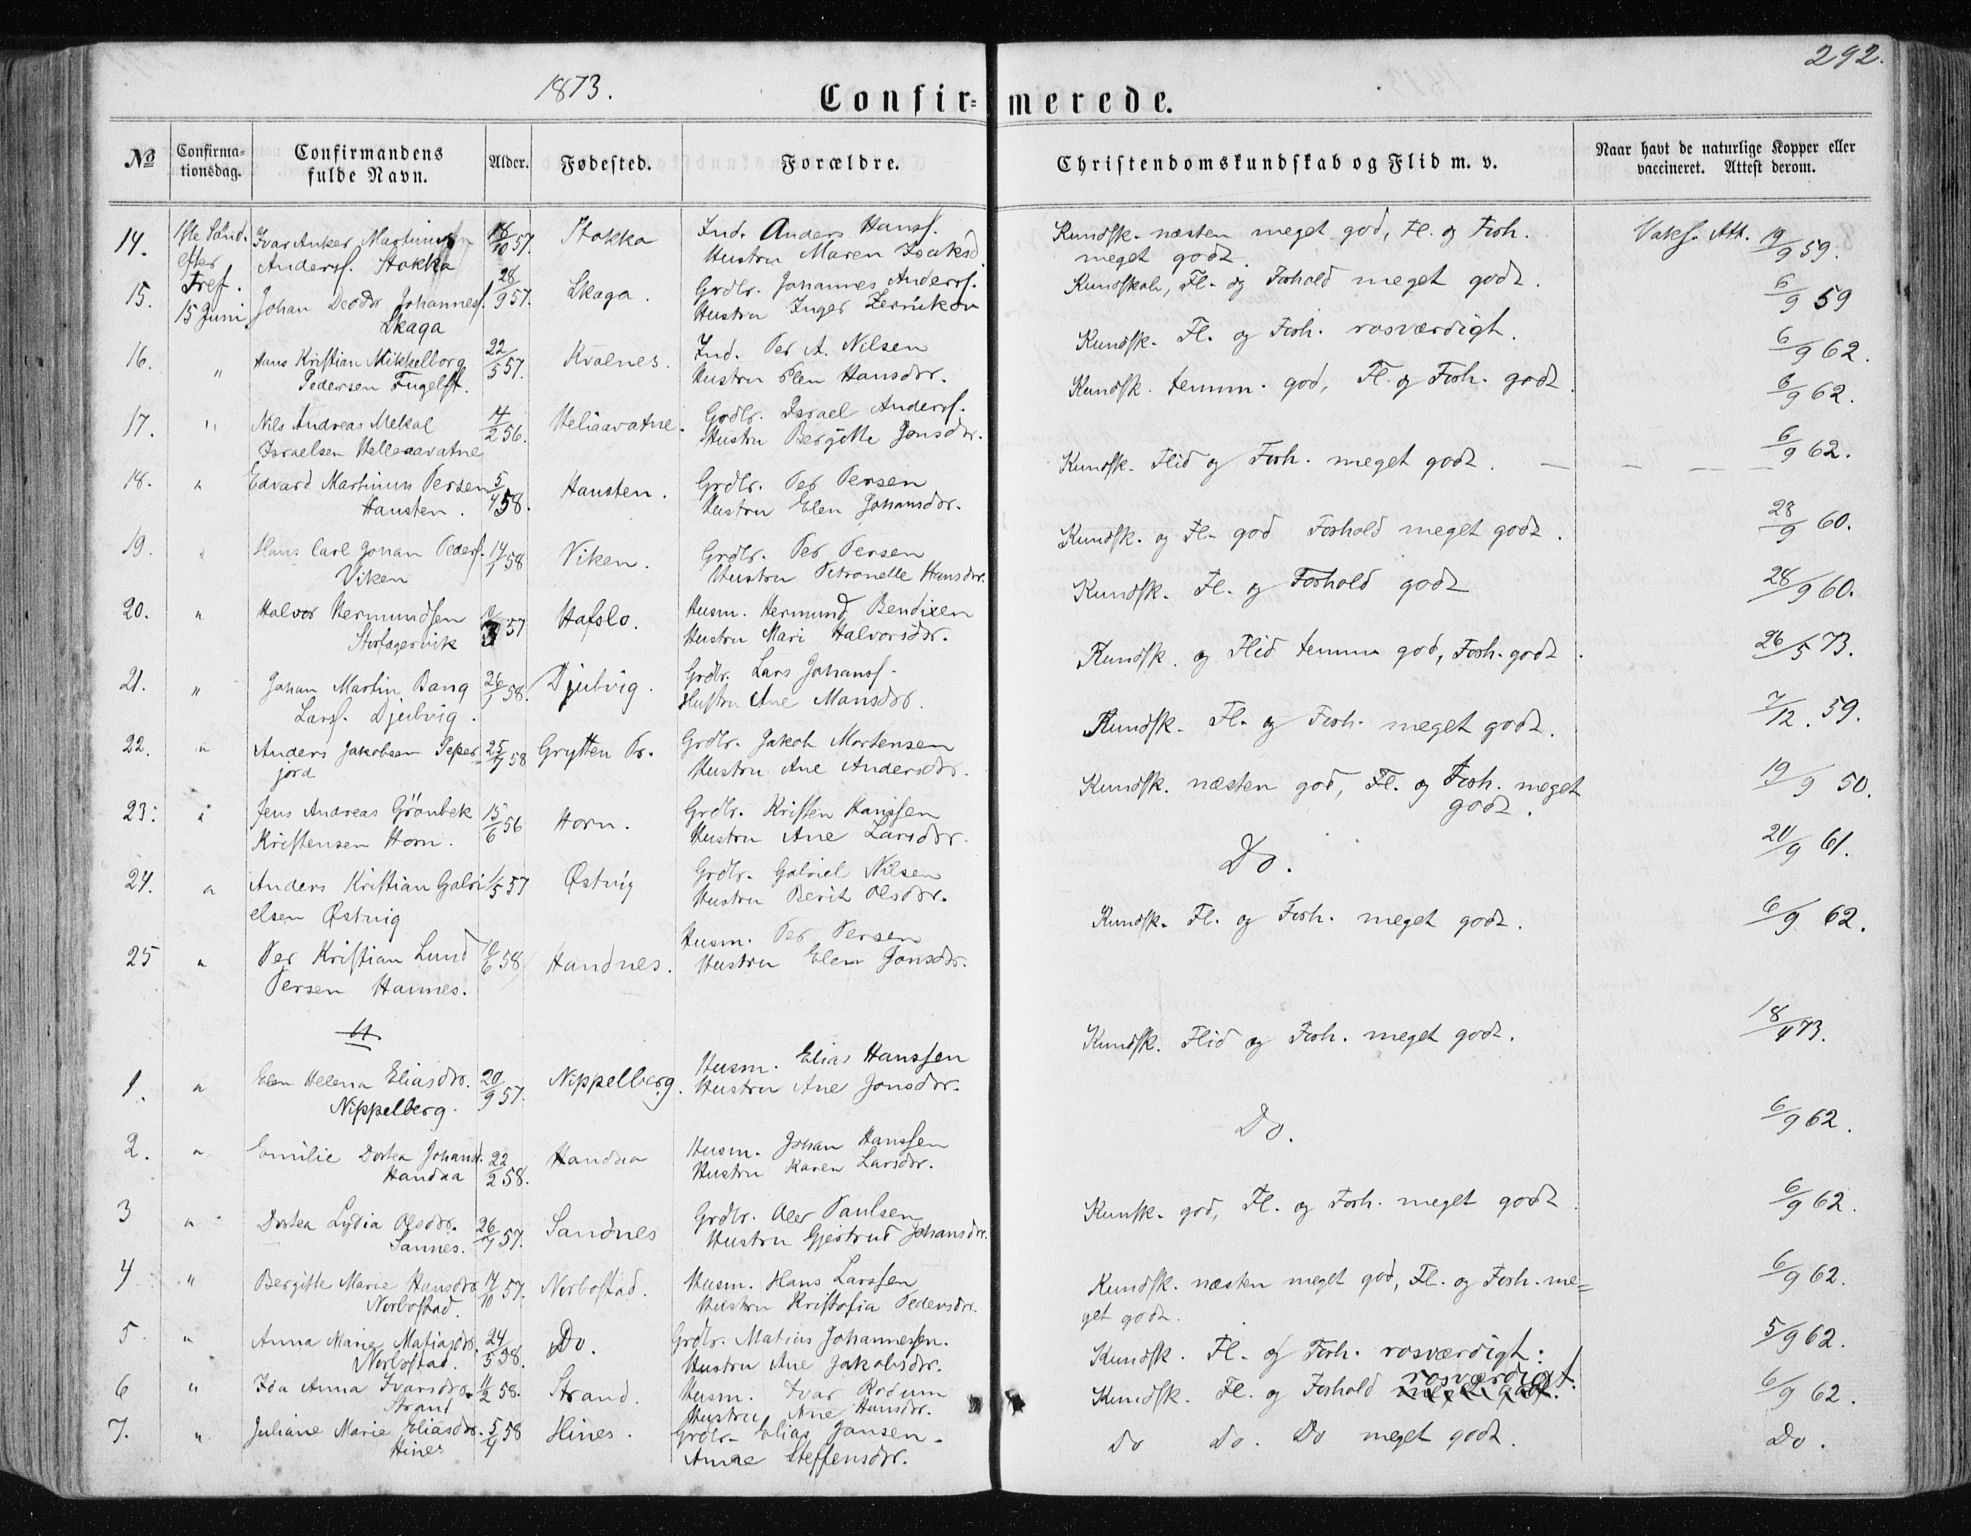 292.
1873.
Confirmerede.
No
Confirmationsdag.
Confirmandens fulde Navn.
Alder.
Fødested.
Forældre.
Christendomskundskab og Flid m. v.
Naar havt de naturlige Kopper eller vaccineret. Attest derom.
14. 1ste Sønd. Ivar Anker Martinus 18/10 57. Stokka Ind. Anders Hansf. Kundsk. næsten meget god, Fl. og Forh. Vaks. Att. 19/9 59.
efter Andersf. Stokka Hustru Maren Isaksd. meget godt.
15. Tref. Johan Johannesf. 28/9 57. Skaga. Grdbr. Johannes Andersf. Kundskab, Fl. og Forhold meget godt. 6/9 59
15 Juni Skaga Hustru Inger
16. " Hans Kristian Mikkelborg 22/5 57. Kvalnes. Ind. Per A. Nilsen Kundsk. Fl. og Forh. rosværdigt. 6/9 62.
Pedersen Fugelst. Hustru Elen Hansdtr.
17. " Nils Andreas Mekal 2 56. Grdbr. Israel Andersf. Kundsk. temm. god, Fl. og Forh. godt. 6/9 62.
Israelsen Hustru Bergitte Jonsdtr.
18. " Edvard Martinus Persen 5/4 58. Hausten. Grdbr. Per Persen Kundsk. Flid og Forh. meget godt. — — — — 6/9 62.
Hausten. Hustru Elen Johansdtr.
19. " Hans Carl Johan Pedersf. 14/1 58 Viken. Grdbr. Per Persen Kundsk. og Fl. god Forhold meget godt. 28/9 60.
Viken Hustru Petronelle Hansdtr.
20. " Halvor Hermundsen 3 57 Hafslo. Husm. Hermund Bendixen Kundsk. Fl. og Forhold godt 28/9 60.
Storfagervik Hustru Mari Halvorsdtr.
21. " Johan Martin Bang 26/1 58. Djubvig. Grdbr. Lars Johansf. Kundsk. og Flid temm god, Forh. godt. 26/5 73.
Larsf. Djubvig. Hustru Ane Mansdtr.
22. " Anders Jakobsen Peper 25/7 58 Grytten Pr. Grdbr. Jakob Mortensen Kundsk. Fl. og Forh. meget godt. 7/12. 59.
jord Hustru Ane Andersdtr.
23. " Jens Andreas Grönbek 15/6 56 Horn. Grdbr. Kristen Hanssen Kundsk. næsten god, Fl. og Forh. meget 19/9 50.
Kristensen Horn. Hustru Ane Larsdtr. godt.
24. " Anders Kristian Gabri 1/5 57 Østvig Grdbr. Gabriel Nilsen Do. 61.
elsen Østvig Hustru Berit Olsdtr.
25 " Per Kristian Lund 10/6 58 Handnes. Husm. Per Persen Kundsk. Fl. og Forh. meget godt. 6/9 62.
Persen Hannes. Hustru Elen Jonsdtr.
1. " Elen Helena Eliasdtr. 20/9 57. Nippelberg. Husm. Elias Hanssen Kundsk. Flid og Forh. meget godt. 18/4 73.
Nippelberg. Hustru Ane Jonsdtr.
2. " Emilie Dortea Johansd. 22/2 58. Handaa Husm. Johan Hanssen Do. 6/9 62.
Handaa Hustru Karen Larsdtr.
3 " Dortea Lydia Olsdtr. 26/7 57. Sandnes Grdbr. Oler Paulsen Kunsk. god, Fl. og Forh. meget godt. 6/9 62.
Sannes. Hustru Gjertrud Johansdtr.
4 " Bergitte Marie Hansdtr. 14/10 57. Norbostad. Husm. Hans Larssen Kundsk. næsten meget god, Fl. og Forh. me= 6/9 62.
Norbostad. Hustru Kristofia Pedersdtr. get godt.
5 " Anna Marie Matiasdtr. 24/5 58. Do. Grdbr. Matias Johannessen. Kundsk. Fl. og Forh. rosværdigt. 5/9 62.
Norbostad. Hustru Ane Jakobsdtr.
6 " Ida Anna Ivarsdtr. 11/2 58. Strand. Husm. Ivar Rödum Kundsk. Fl. og Forhold rosværdigt. 6/9 62.
Strand Hustru Ane Hansdtr.
7. " Juliane Marie Eliasdtr. 5/4 58 Hines. Grdbr. Elias Jonsen. Do Do. Do meget godt. Do.
Hines Anne Steffensdtr.